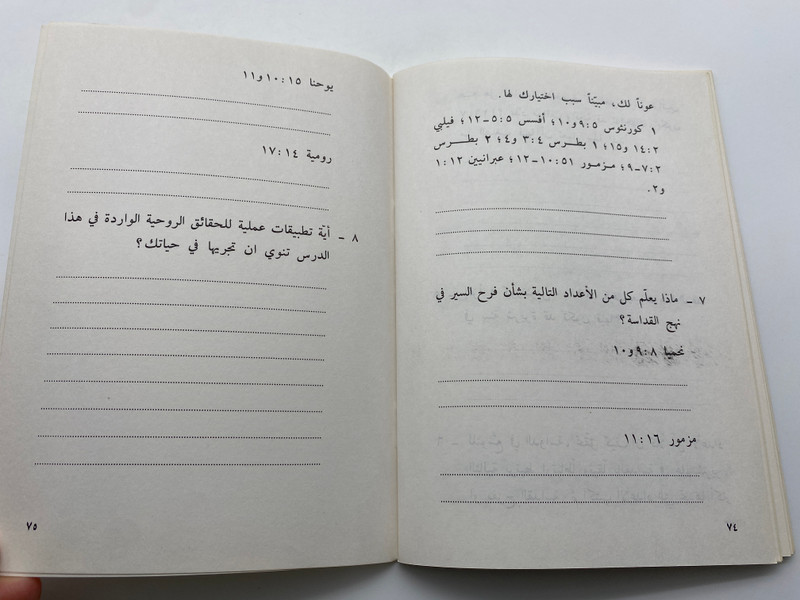 عوناً لك، مبيّناً سبب اختيارك لها.
١ كورنثوس ٩:٥ و١٠؛ أفسس ٥:٥-١٢؛ فيلبي
١٤:٢ و١٥؛ ١ بطرس ٣:٤ و٤؛ ٢ بطرس
٧:٢-٩؛ مزمور ١٠:٥١-١٢؛ عبرانيين ١:١٢
و٢.
٧ - ماذا يعلّم كل من الأعداد التالية بشأن فرح السير في
نهج القداسة؟
نحميا ٩:٨ و١٠
مزمور ١١:١٦
٧٤
يوحنا ١٠:١٥ و١١
رومية ١٧:١٤
٨ - أيّة تطبيقات عملية للحقائق الروحية الواردة في هذا
الدرس تنوي ان تجريها في حياتك؟
٧٥